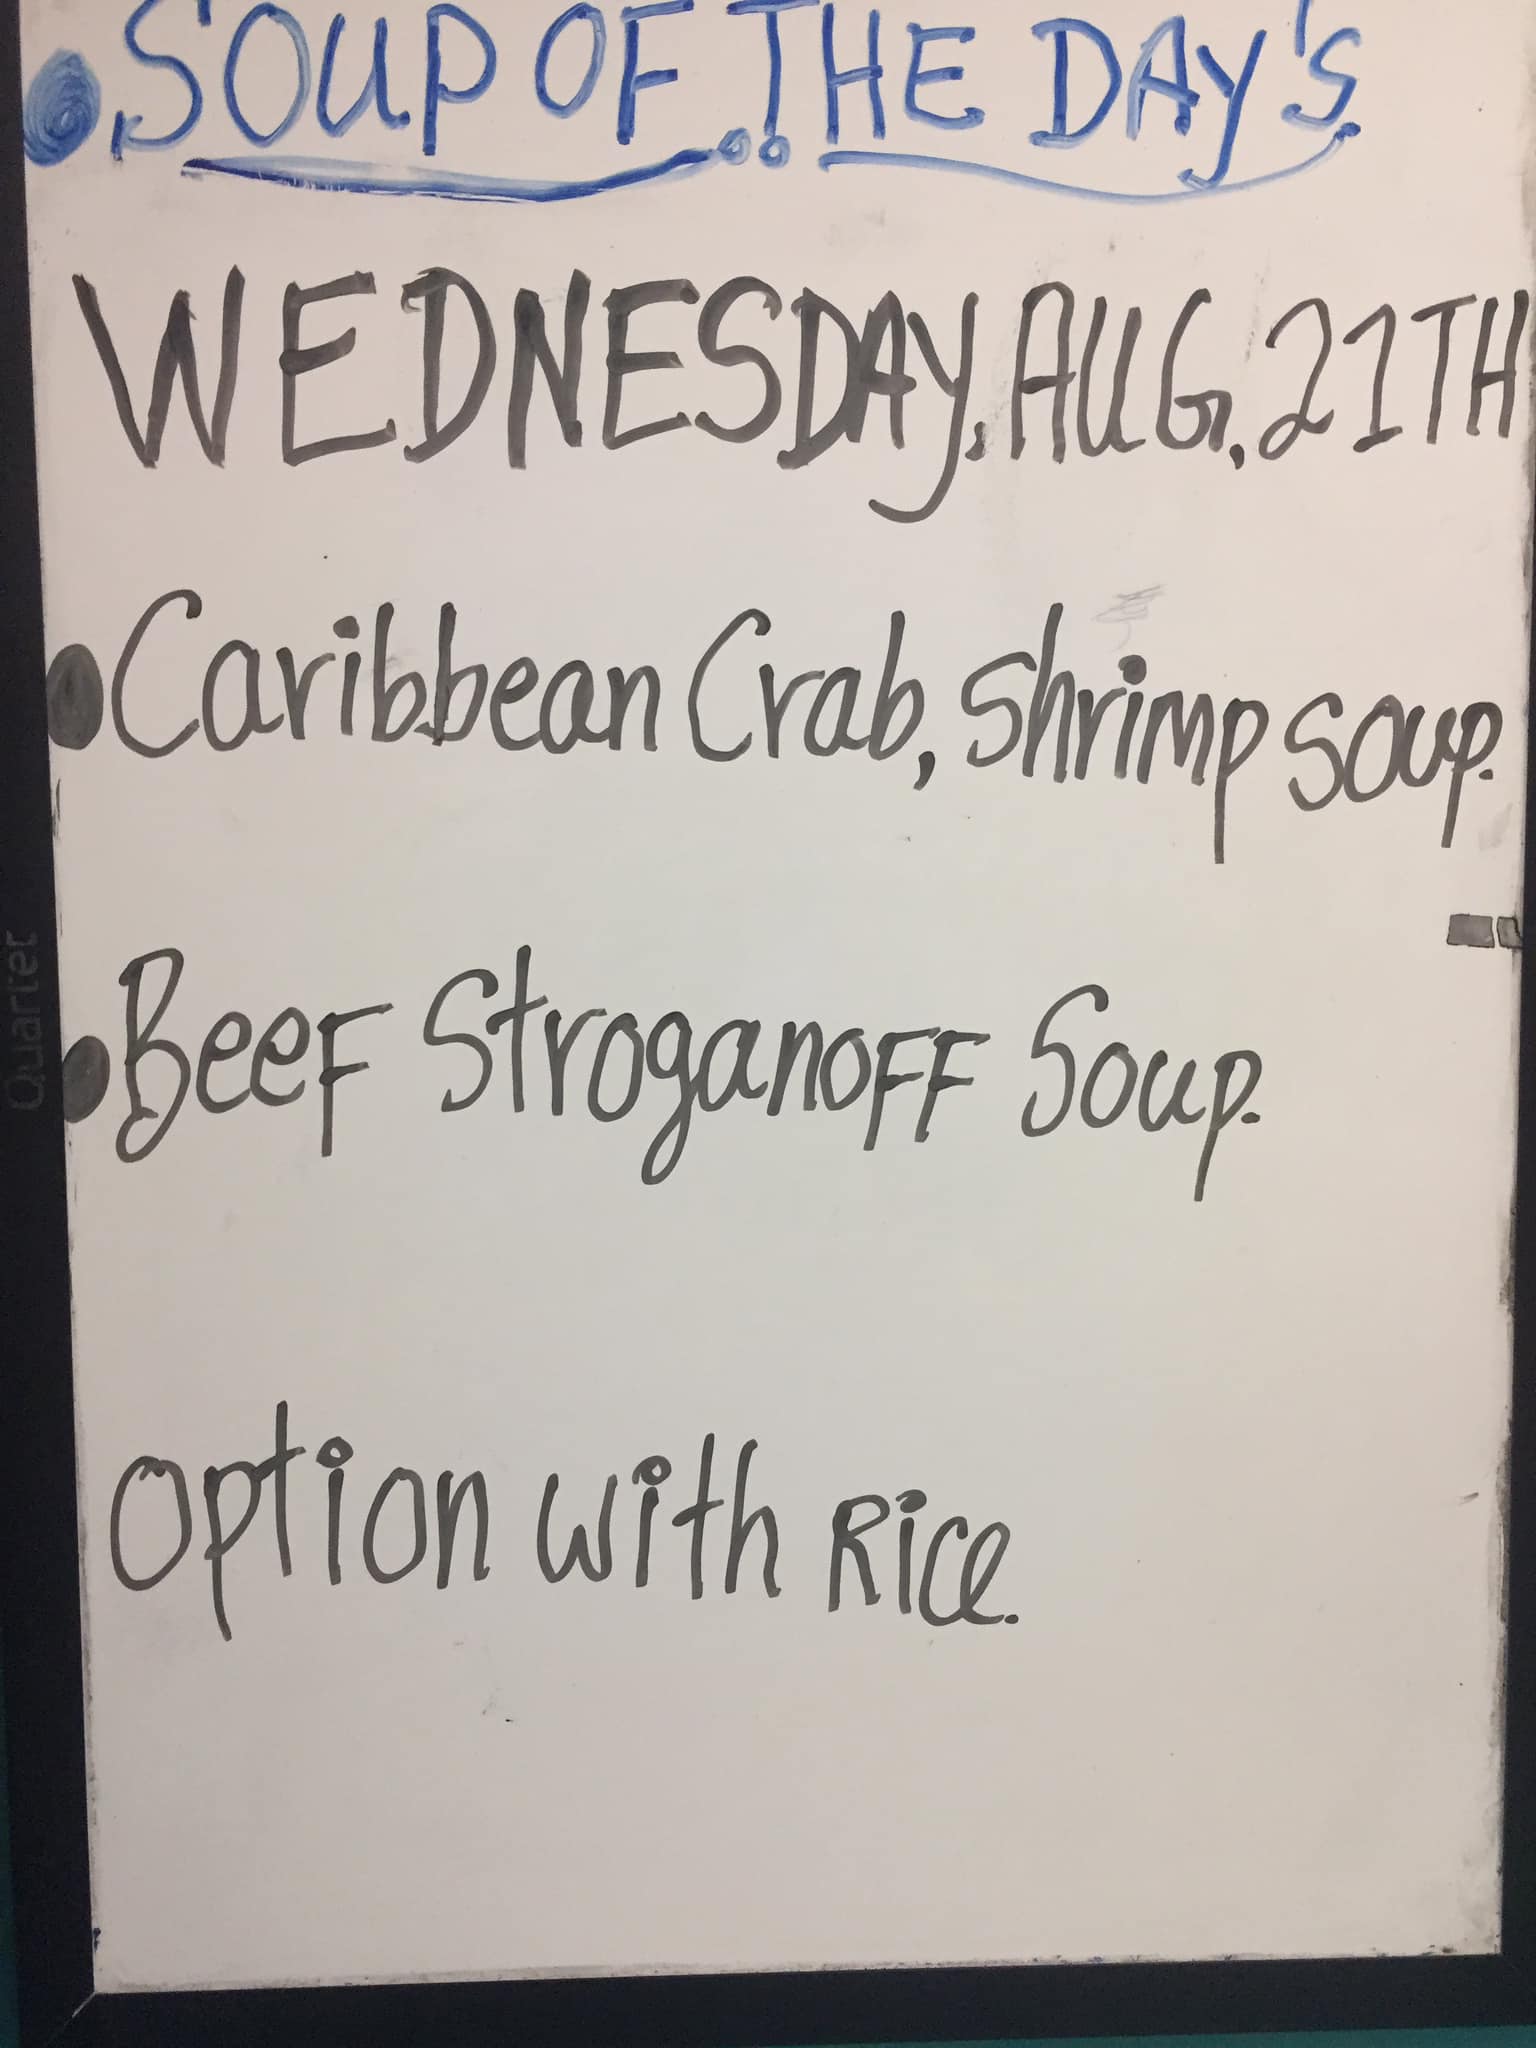 SOUP OF THE DAY'S
WEDNESDAY, AUG, 21TH
Caribbean Crab, Shrimp Soup.
Quartet
Beef Stroganoff Soup.
Option with Rice.